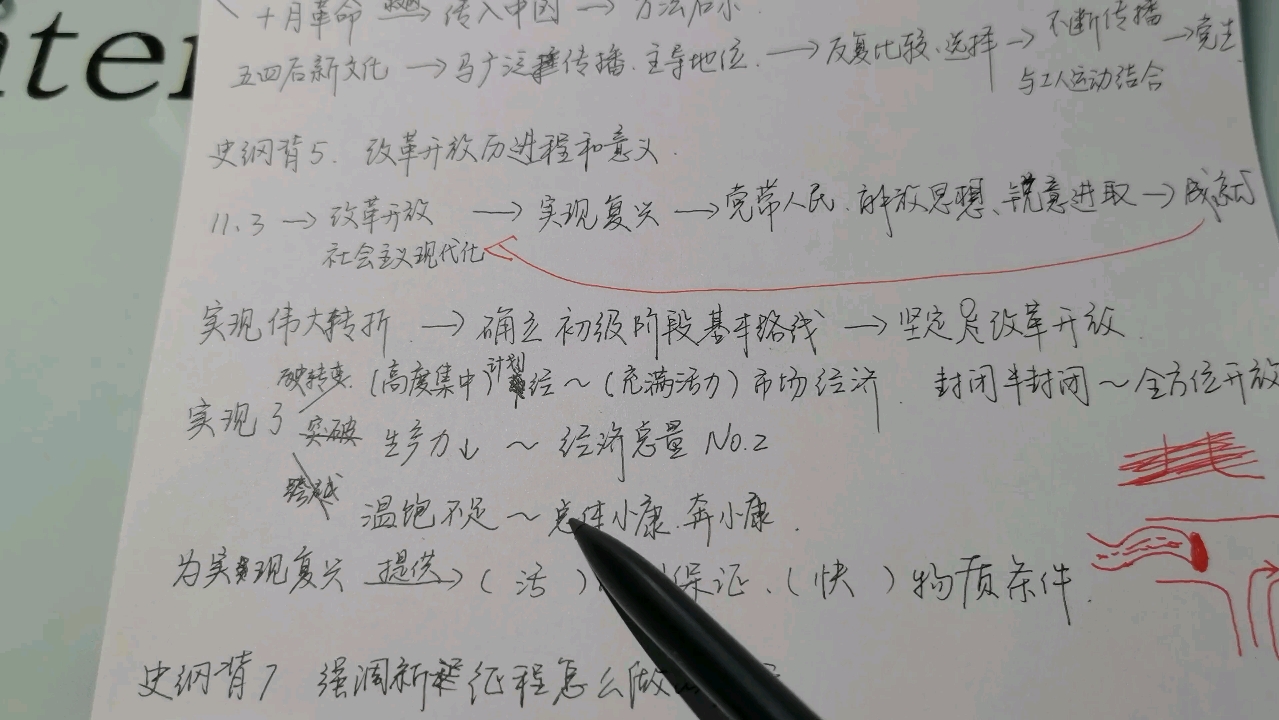 iter
十月革命 → 传入中国 → 方法启示.
五四后新文化 → 马广泛传播、主导地位. → 反复比较、选择 → 不断传播 与工人运动结合 → 党生
史纲背5. 改革开放历进程和意义.
11.3 → 改革开放 社会主义现代化 → 实现复兴 → 党带人民、解放思想、锐意进取 → 成就
实现伟大转折 → 确立初级阶段基本路线 → 坚定 改革开放.
转变 (高度集中)计划经～(充满活力)市场经济. 封闭半封闭～全方位开放
实现了 突破 生产力↓ ～ 经济总量 No.2
跨越 温饱不足～总体小康.奔小康.
为实现复兴 提供→(活) 保证、(快)物质条件.
史纲背7 强调新征程怎么做